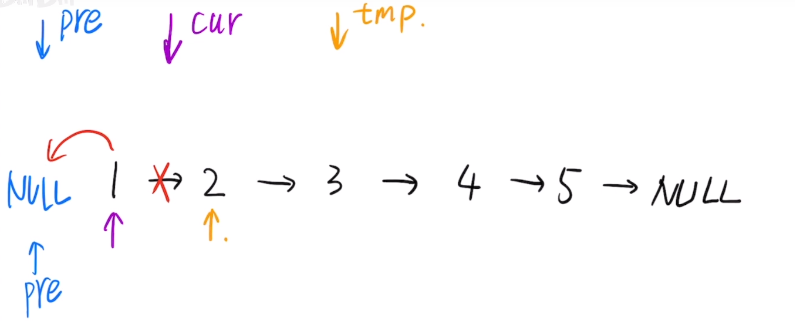 pre cur tmp.
NULL 1 2 → 3 → 4 → 5 → NULL
pre